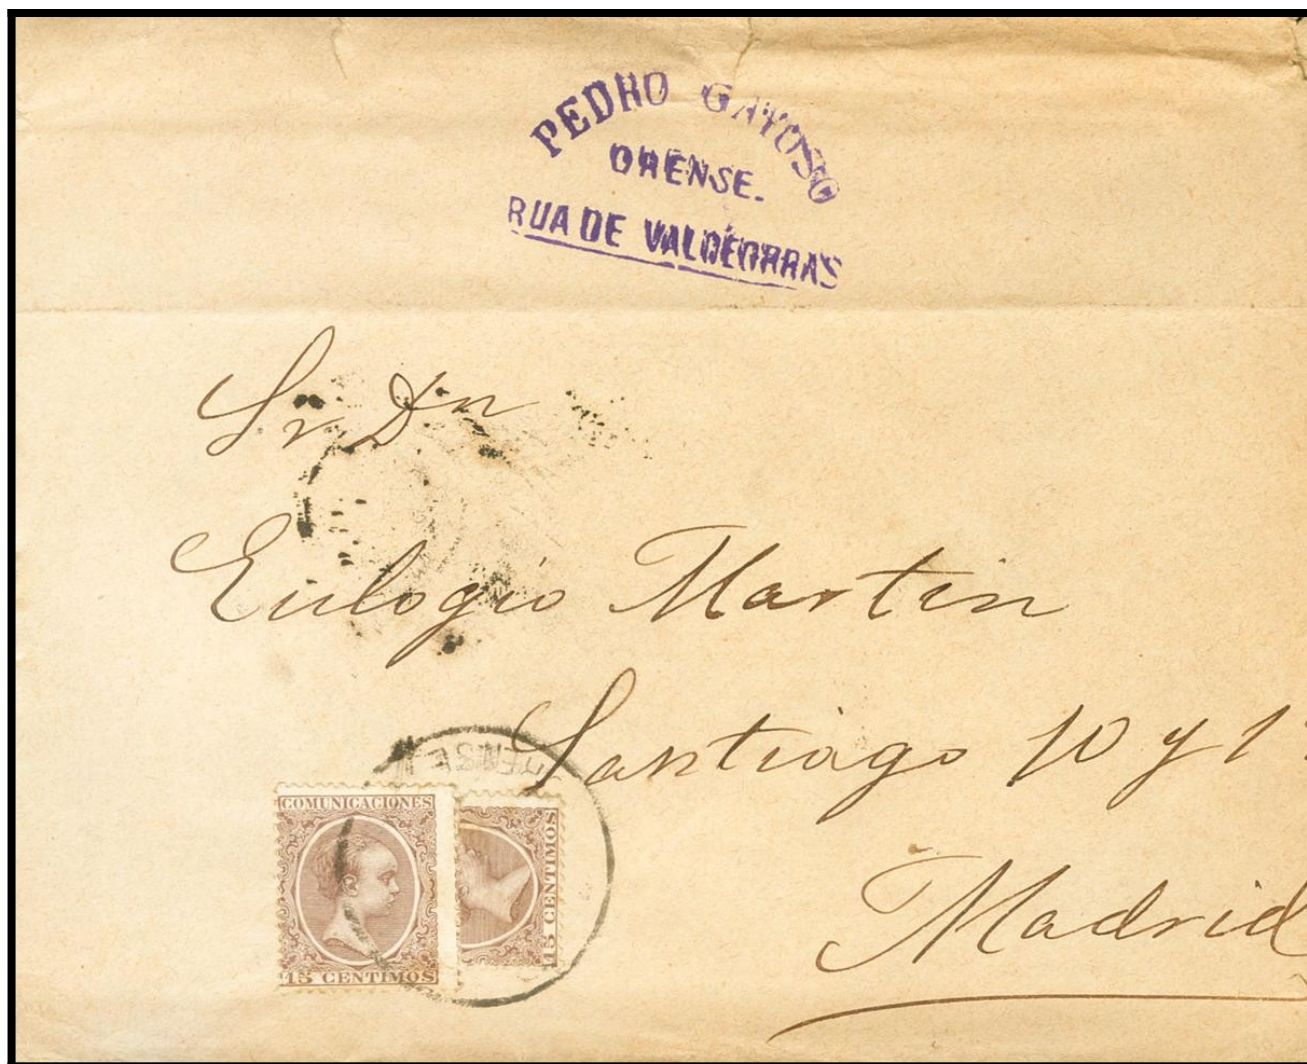 PEDRO GAYOSO
ORENSE.
RUA DE VALDEORRAS
Sr Dn
Eulogio Martin
Santiago 10 y 1
Madrid
COMUNICACIONES
15 CENTIMOS
15 CENTIMOS